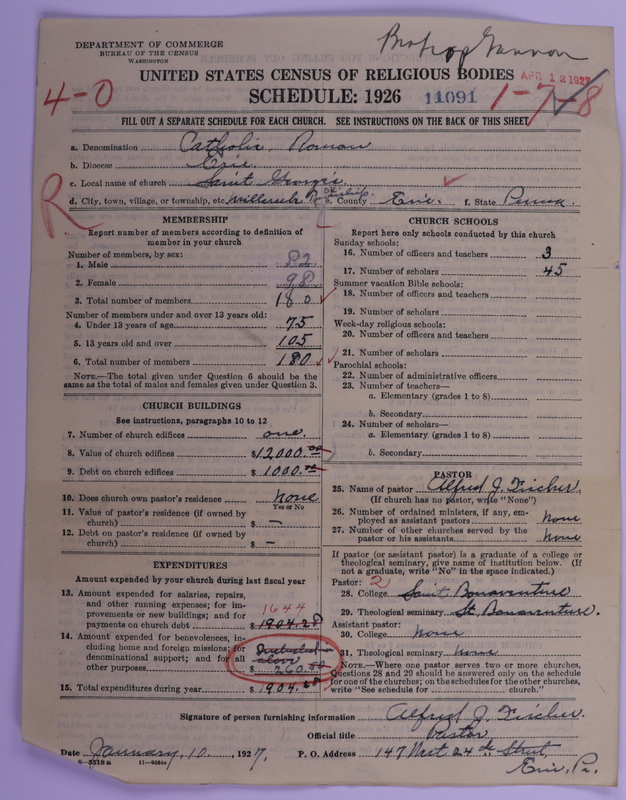 DEPARTMENT OF COMMERCE
BUREAU OF THE CENSUS
WASHINGTON
Bishop Gannon
UNITED STATES CENSUS OF RELIGIOUS BODIES
APR 12 1927
4-0
SCHEDULE: 1926
11091
1-7-8
FILL OUT A SEPARATE SCHEDULE FOR EACH CHURCH. SEE INSTRUCTIONS ON THE BACK OF THIS SHEET
a. Denomination Catholic, Roman
b. Diocese Erie
c. Local name of church Saint George's
d. City, town, village, or township, etc. Millcreek Township e. County Erie. f. State Penna.
R
MEMBERSHIP
Report number of members according to definition of member in your church
Number of members, by sex:
1. Male 82
2. Female 98
3. Total number of members 180
Number of members under and over 13 years old:
4. Under 13 years of age 75
5. 13 years old and over 105
6. Total number of members 180
NOTE.—The total given under Question 6 should be the same as the total of males and females given under Question 3.
CHURCH BUILDINGS
See instructions, paragraphs 10 to 12
7. Number of church edifices one.
8. Value of church edifices $12000.00
9. Debt on church edifices $1000.00
10. Does church own pastor's residence none
Yes or No
11. Value of pastor's residence (if owned by church) $ —
12. Debt on pastor's residence (if owned by church) $ —
EXPENDITURES
Amount expended by your church during last fiscal year
13. Amount expended for salaries, repairs, and other running expenses; for improvements or new buildings; and for payments on church debt
1644
$1904.28
14. Amount expended for benevolences, including home and foreign missions; for denominational support; and for all other purposes
Included in above
$260.00
15. Total expenditures during year $1904.28
CHURCH SCHOOLS
Report here only schools conducted by this church
Sunday schools:
16. Number of officers and teachers 3
17. Number of scholars 45
Summer vacation Bible schools:
18. Number of officers and teachers
19. Number of scholars
Week-day religious schools:
20. Number of officers and teachers
21. Number of scholars
Parochial schools:
22. Number of administrative officers
23. Number of teachers—
a. Elementary (grades 1 to 8)
b. Secondary
24. Number of scholars—
a. Elementary (grades 1 to 8)
b. Secondary
PASTOR
25. Name of pastor Alfred J. Fischer.
(If church has no pastor, write "None")
26. Number of ordained ministers, if any, employed as assistant pastors None
27. Number of other churches served by the pastor or his assistants None
If pastor (or assistant pastor) is a graduate of a college or theological seminary, give name of institution below. (If not a graduate, write "No" in the space indicated.)
Pastor: 2
28. College Saint Bonaventure
29. Theological seminary St. Bonaventure.
Assistant pastor:
30. College None
31. Theological seminary None
NOTE.—Where one pastor serves two or more churches, Questions 28 and 29 should be answered only on the schedule for one of the churches; on the schedules for the other churches, write "See schedule for church."
Signature of person furnishing information Alfred J. Fischer.
Official title Pastor
Date January, 10, 1927. P. O. Address 147 West 24th Street
Erie, Pa.
8-5518a 11-9654a